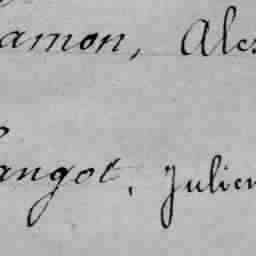 amon, Ales
angot, Julien